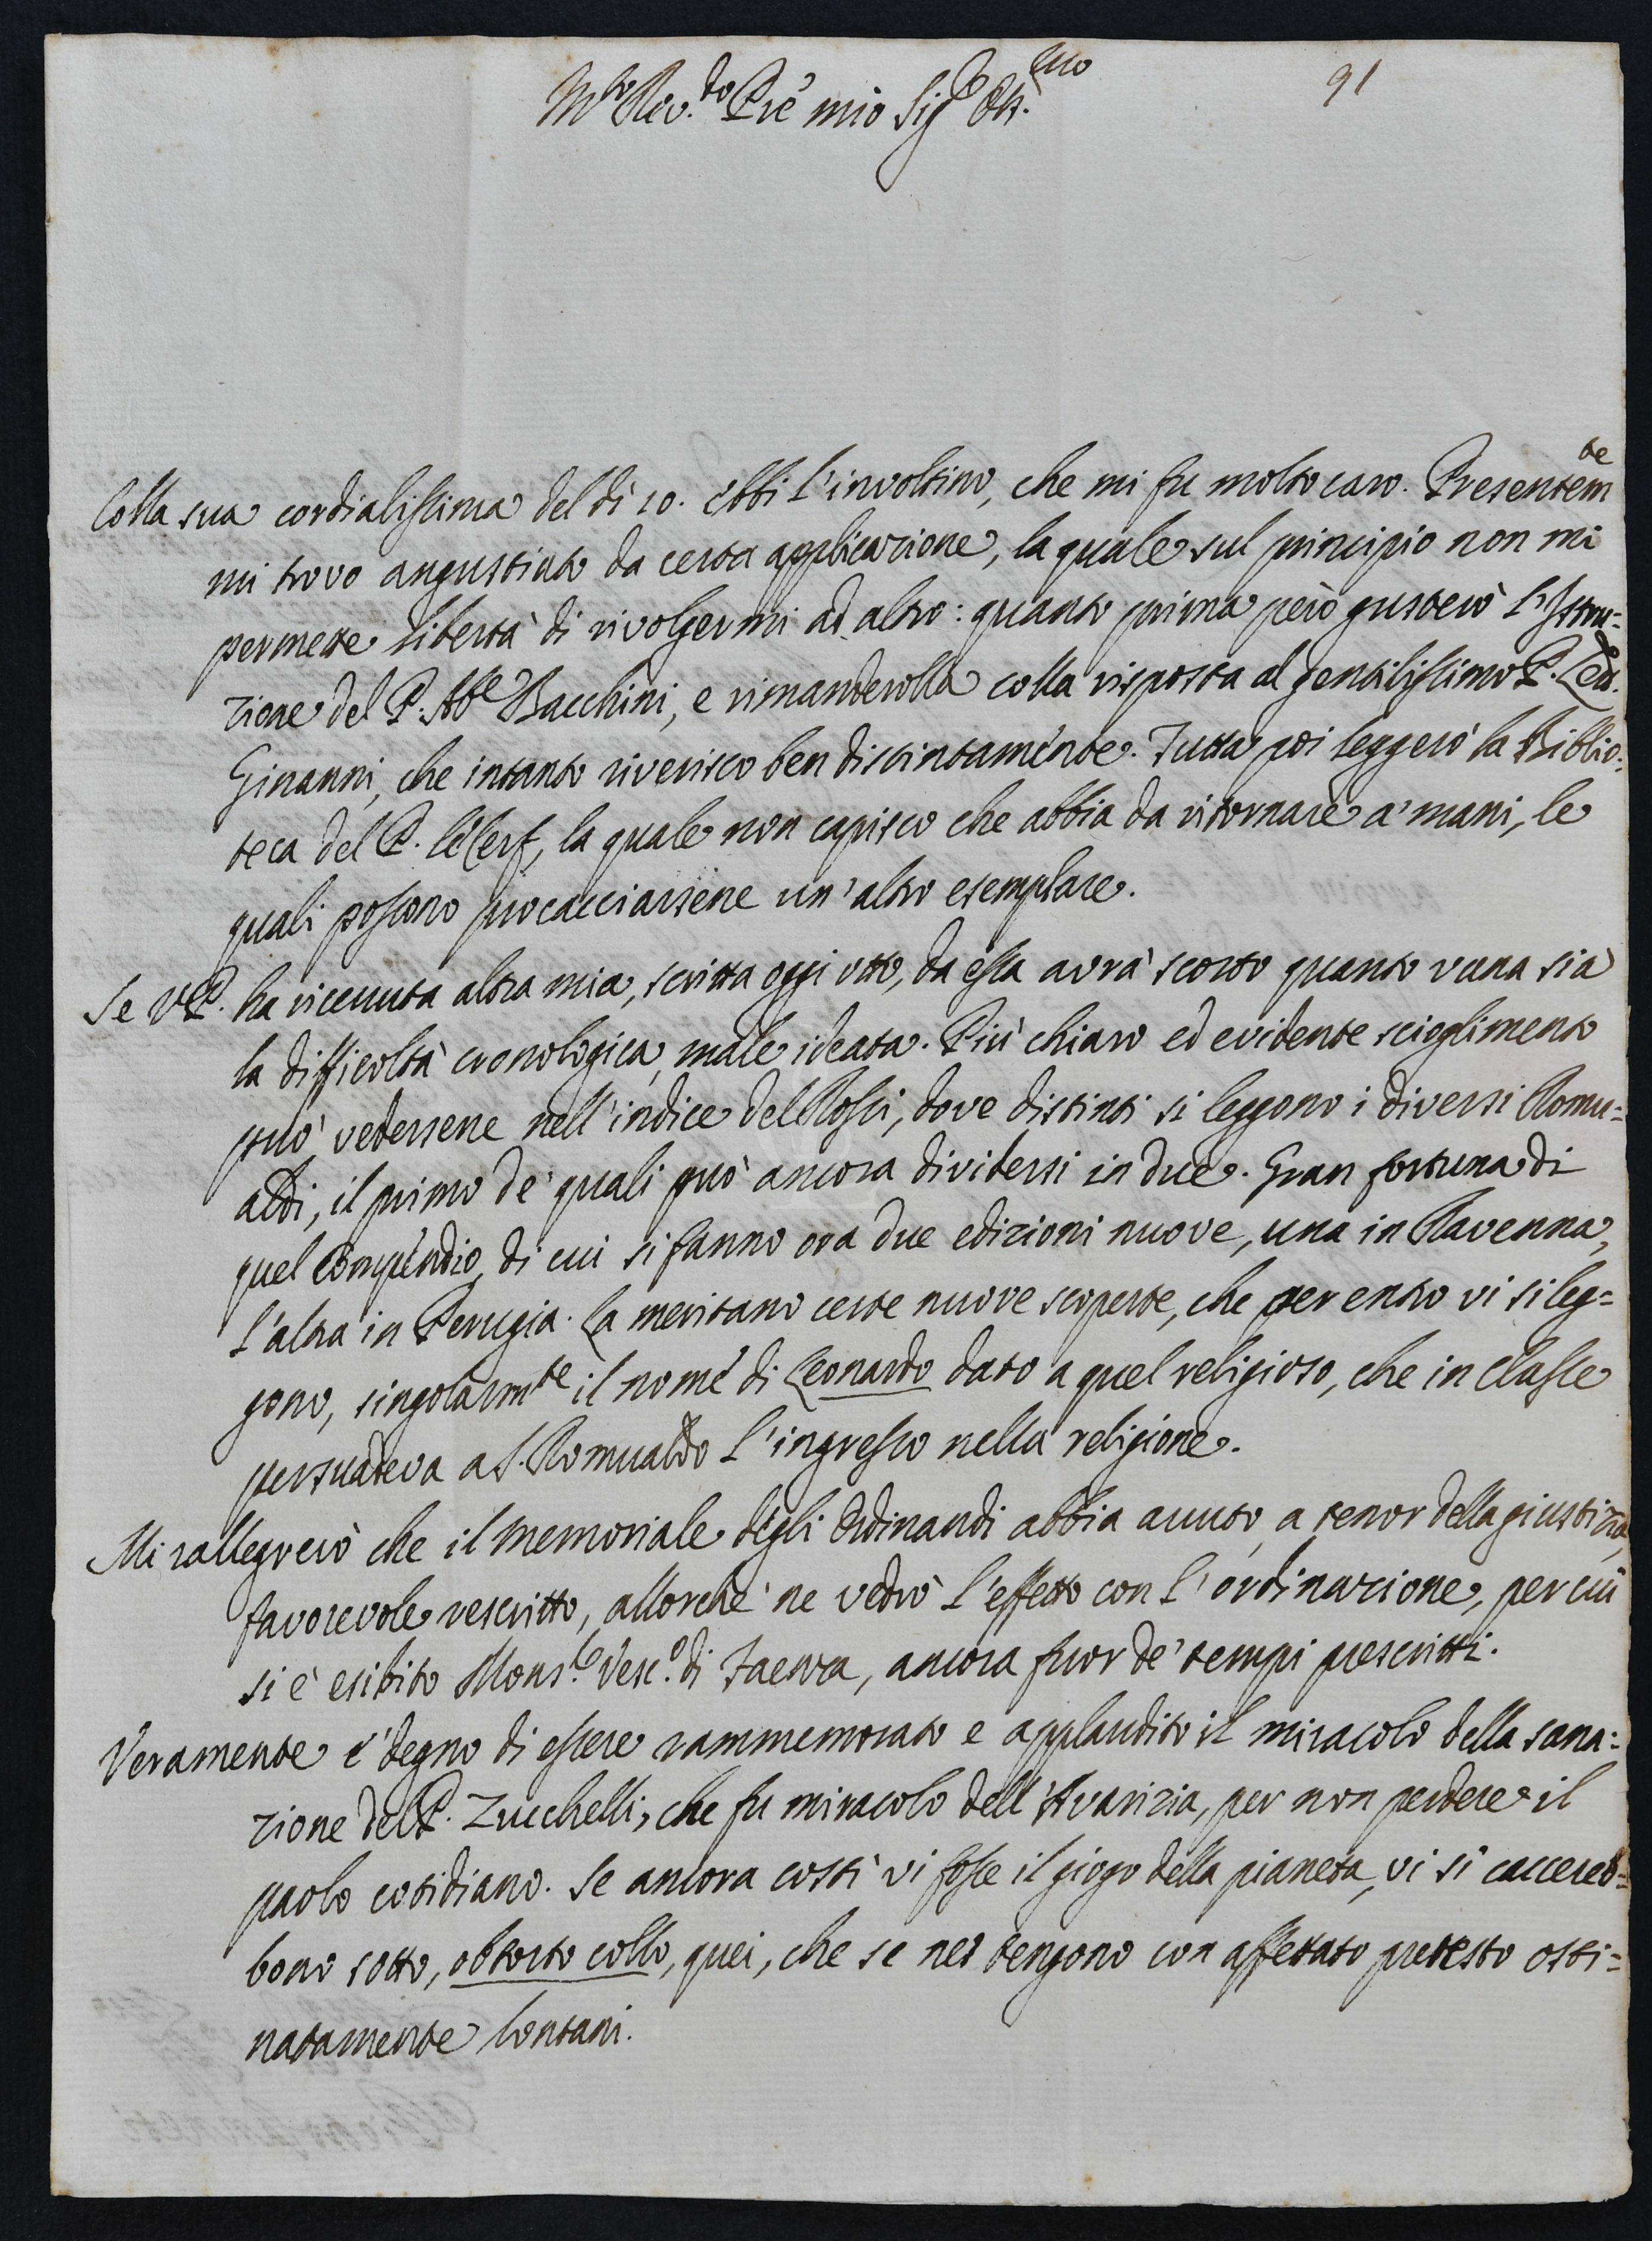 91
M.to Rev.do P.re mio Sig.re Oss.mo
Colla sua cordialissima del dì 10. ebbi l'involtino, che mi fu molto caro. Presentem.te
mi trovo angustiato da certa applicazione, la quale sul principio non mi
permette libertà di rivolgermi ad altro: quanto prima però gusterò l'Istru=
zione del P. Ab.e Bacchini, e rimanderolla colla risposta al gentilissimo P. Lett.
Ginanni, che intanto riverisco ben distintamente. Tutta poi leggerò la Biblio=
teca del P. le Cerf, la quale non capisco che abbia da ritornare a' mani, le
quali possono procacciarsene un'altro esemplare.
Se V.P. ha ricevuta altra mia, scritta oggi otto, da essa avrà scorto quanto vana sia
la difficoltà cronologica, male ideata. Più chiaro ed evidente scioglimento
può vedersene nell'indice del Rossi, dove distinti si leggono i diversi Romu=
aldi, il primo de' quali può ancora dividersi in due. Gran fortuna di
quel Compendio, di cui si fanno ora due edizioni nuove, una in Ravenna,
l'altra in Perugia. La meritano certe nuove scoperte, che per entro vi si leg=
gono, singolarm.te il nome di Leonardo dato a quel religioso, che in Classe
persuadeva a S. Romualdo l'ingresso nella religione.
Mi rallegrerò che il memoriale degli Ordinandi abbia avuto, a tenor della giustizia,
favorevole rescritto, allorchè ne vedrò l'effetto con l'ordinazione, per cui
si è esibito Mons.re Vesc.o di Faenza, ancora fuor de' tempi prescritti.
Veramente è degno di essere rammemorato e applaudito il miracolo della sana=
zione del P. Zucchelli, che fu miracolo dell'Avarizia, per non perdere il
paolo cotidiano. Se ancora costì vi fosse il giogo della pianeta, vi si caccereb=
bono sotto, obtorto collo, quei, che se ne tengono con affettato pretesto osti=
natamente lontani.